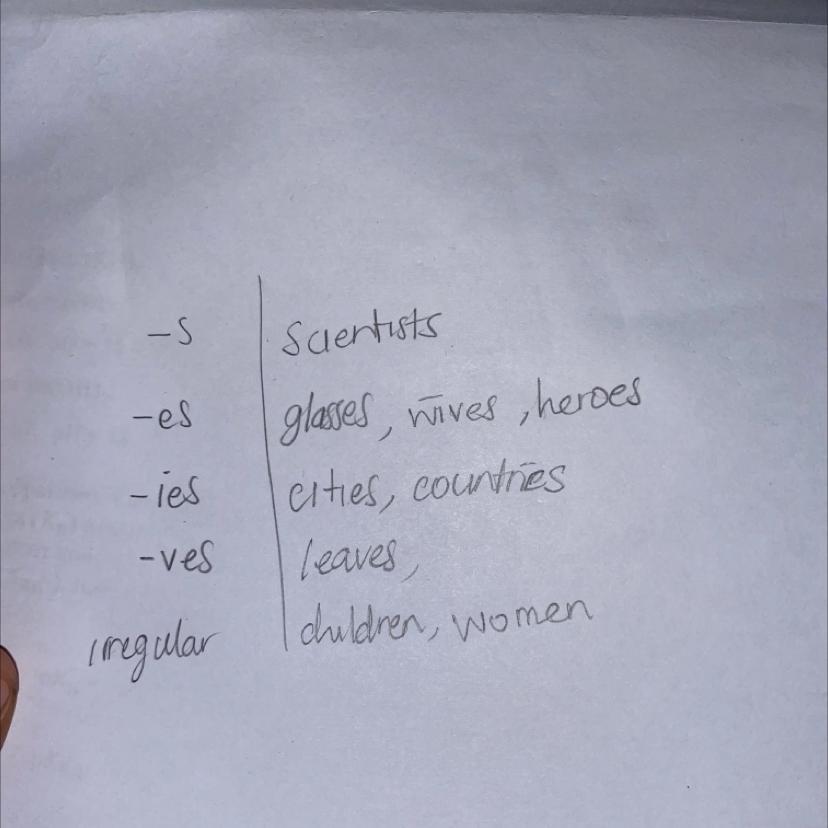 -s scientists
-es glasses, wives, heroes
-ies cities, countries
-ves leaves,
irregular children, women